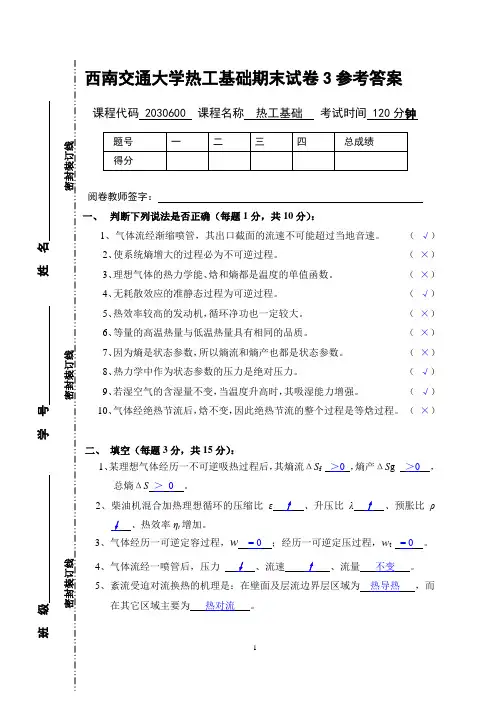 西南交通大学热工基础期末试卷3参考答案
课程代码 2030600 课程名称 热工基础 考试时间 120分钟
题号 一 二 三 四 总成绩
得分
阅卷教师签字：
一、 判断下列说法是否正确（每题1分，共10分）：
1、气体流经渐缩喷管，其出口截面的流速不可能超过当地音速。 （ √）
2、使系统熵增大的过程必为不可逆过程。 （ ×）
3、理想气体的热力学能、焓和熵都是温度的单值函数。 （ ×）
4、无耗散效应的准静态过程为可逆过程。 （ √）
5、热效率较高的发动机,循环净功也一定较大。 （ ×）
6、等量的高温热量与低温热量具有相同的品质。 （ ×）
7、因为熵是状态参数,所以熵流和熵产也都是状态参数。 （ ×）
8、热力学中作为状态参数的压力是绝对压力。 （ √）
9、若湿空气的含湿量不变,当温度升高时,其吸湿能力增强。 （ √）
10、气体经绝热节流后,焓不变,因此绝热节流的整个过程是等焓过程。（ ×）
二、 填空（每题3分，共15分）：
1、某理想气体经历一不可逆吸热过程后,其熵流ΔSf >0 ,熵产ΔSg >0 ，
总熵ΔS > 0 。
2、柴油机混合加热理想循环的压缩比 ε ↑ 、升压比 λ ↑ 、预胀比 ρ
↓ 、热效率ηt增加。
3、气体经历一可逆定容过程，w =0 ；经历一可逆定压过程，wt =0 。
4、气体流经一喷管后，压力 ↓ 、流速 ↑ 、流量 不变 。
5、紊流受迫对流换热的机理是：在壁面及层流边界层区域为 热导热 ，而
在其它区域主要为 热对流 。
1
班 级
学 号
姓 名
密封装订线
密封装订线
密封装订线